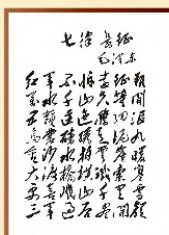 七律 长征
毛泽东
红军不怕远征难
万水千山只等闲
五岭逶迤腾细浪
乌蒙磅礴走泥丸
金沙水拍云崖暖
大渡桥横铁索寒
更喜岷山千里雪
三军过后尽开颜